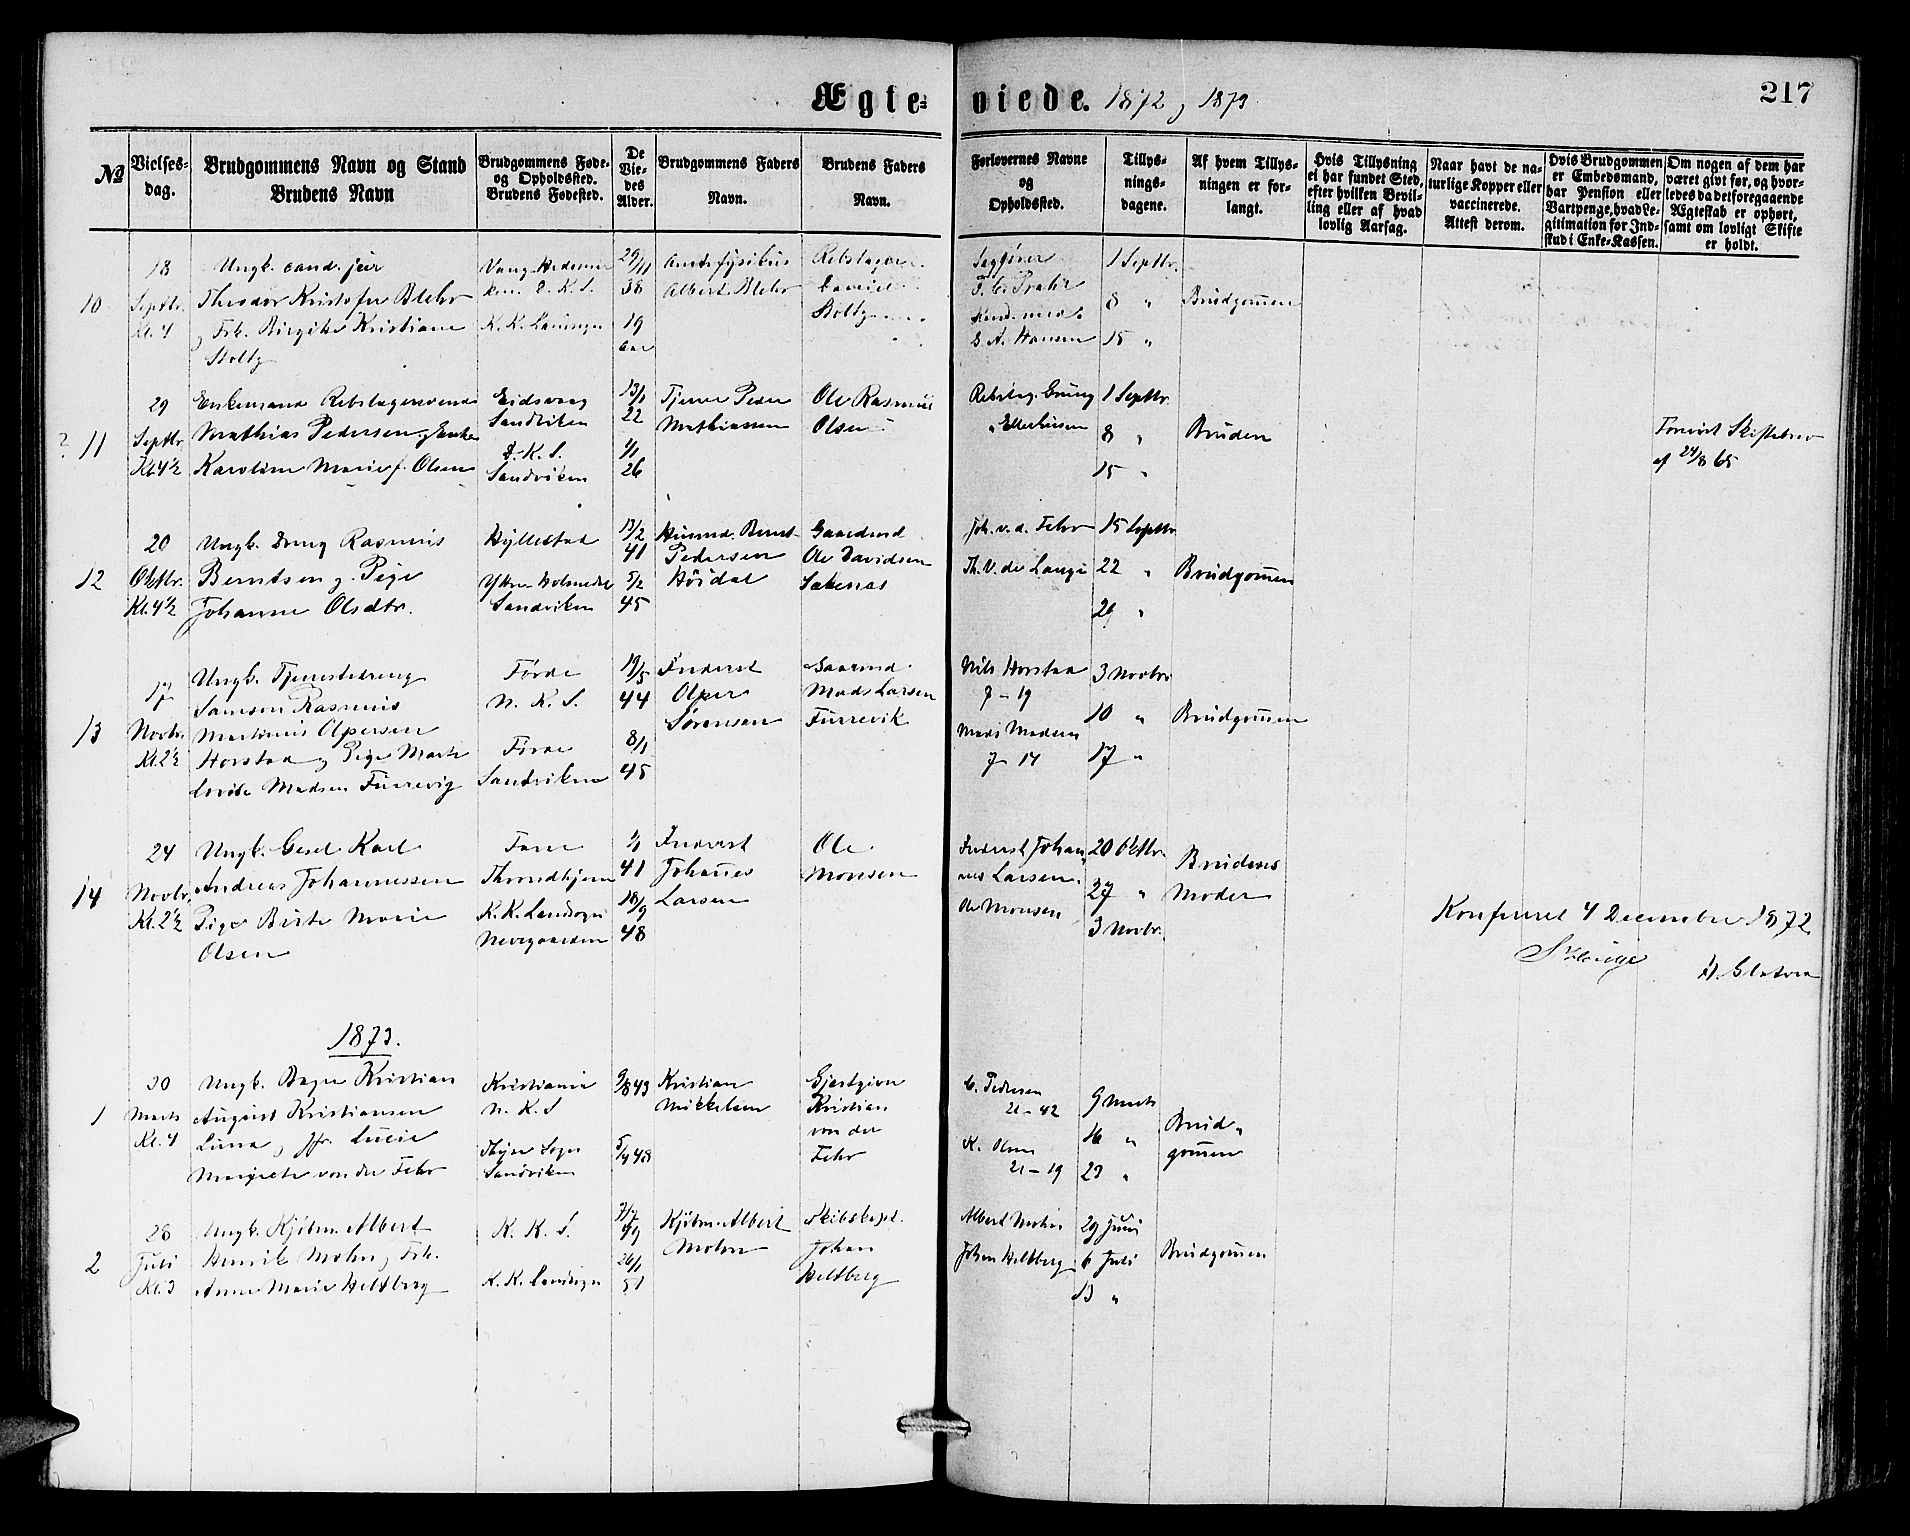 Ægte- viede. 1872 og 1873
217
№
Vielses-
dag.
Brudgommens Navn og Stand
Brudens Navn
Brudgommens Føde-
og Opholdssted.
Brudens Fødested.
De
Vie-
des
Alder.
Brudgommens Faders
Navn.
Brudens Faders
Navn.
Forlovernes Navne
og
Opholdssted.
Tillys-
nings-
dagene.
Af hvem Tillys-
ningen er for-
langt.
Hvis Tillysning
ei har fundet Sted,
efter hvilken Bevil-
ling eller af hvad
lovlig Aarsag.
Naar havt de na-
turlige Kopper eller
vaccinerede.
Attest derom.
Hvis Brudgommen
er Embedsmand,
har Pension eller
Vartpenge, hvad Le-
gitimation for Ind-
skud i Enke-Kassen.
Om nogen af dem har
været givt før, og hvor-
ledes da det foregaaende
Ægteskab er ophørt,
samt om lovligt Skifte
er holdt.
10
18
Septbr.
Kl. 4
Ungk. cand. jur
Theodor Kristofer Blehr
og Frk. Birgitte Kristiane
Stoltz
D. K. S.
K. K. Landsogn
29/11
38
19
Aar
Amtsfysikus
Albert Blehr
Rebslager
Stoltz
Sagfører
S. A. Hansen
1 Septbr.
8 "
15 "
Brudgommen
11
29
Septbr
Kl. 4½
Enkemand Rebslagersvend
Mathias Pedersen og Enke
Karoline Marie f. Olsen
Eidsvaag
Sandviken
D. K. S.
Sandviken
13/1
22
1/1
26
Tjener Peder
Mathiassen
Ole Rasmus
Olsen
Rebslag. Gring
" Ellertsen
1 Septbr.
8 "
15 "
Bruden
Forevist Skiftebrev
af 24/8 65
12
20
Oktbr.
Kl. 4½
Ungk. Dreng Rasmus
Berntsen og Pige
Johanne Olsdtr.
Hyllestad
Ytre Holmedal
Sandviken
13/2
41
5/2
45
Husmd. Bernt
Pedersen
Høidal
Gaardmd
Ole Davidsen
Sakenas
Joh. v. d. Fehr
Th. V. de Lange
15 Septbr
22 "
29 "
Brudgommen
13
17
Novbr.
Kl. 2½
Ungk. Tjenestedreng
Samson Rasmus
Martinus Olpersen
Horstad og Pige Marte
Lovise Madsen Furrevig
Førde
N. K. S.
Førde
Sandviken
19/5
44
8/1
45
Inderst
Olper
Sørensen
Gaardmd.
Mads Larsen
Furrevik
Nils Horstad
7 - 19
Mads Madsen
7 - 14
3 Novbr
10 "
17 "
Brudgommen
14
24
Novbr.
Kl. 2½
Ungk. Gesel Karl
Andreas Johannessen
Pige Birte Marie
Olsen
Throndhjem
K. K. Landsogn
Nevegaarden
1/1
41
18/9
48
Inderst
Johannes
Larsen
Ole
Monsen
Inderst Johan-
nes Larsen
Ole Monsen
20 Oktbr.
27 "
3 Novbr.
Brudens
Moder
Konfereret 4 December 1872
1873.
1
30
Marts
Kl. 4
Ungk. Bager Kristian
August Kristiansen
Luna og Jfr. Lucie
Margrete von der Fehr
Kristiania
N. K. S
Sandviken
9/8 43
5/4 48
Kristian
Mikkelsen
Gjestgiver
Kristian
von der
Fehr
C. Pedersen
21 - 42
K. Olsen
21 - 19
9 Marts
16 "
23 "
Brud-
gommen
2
28
Juli
Kl. 3
Ungk. Kjøbm. Albert
Henrik Mohr og Frk.
Anne Marie Heltberg
K. K. S.
K. K. Landsogn
26/1
51
Kjøbm. Albert
Mohr
Skibskapt.
Johan
Heltberg
Albert Mohr
Johan Heltberg
29 Juni
6 Juli
13 "
Brudgommen